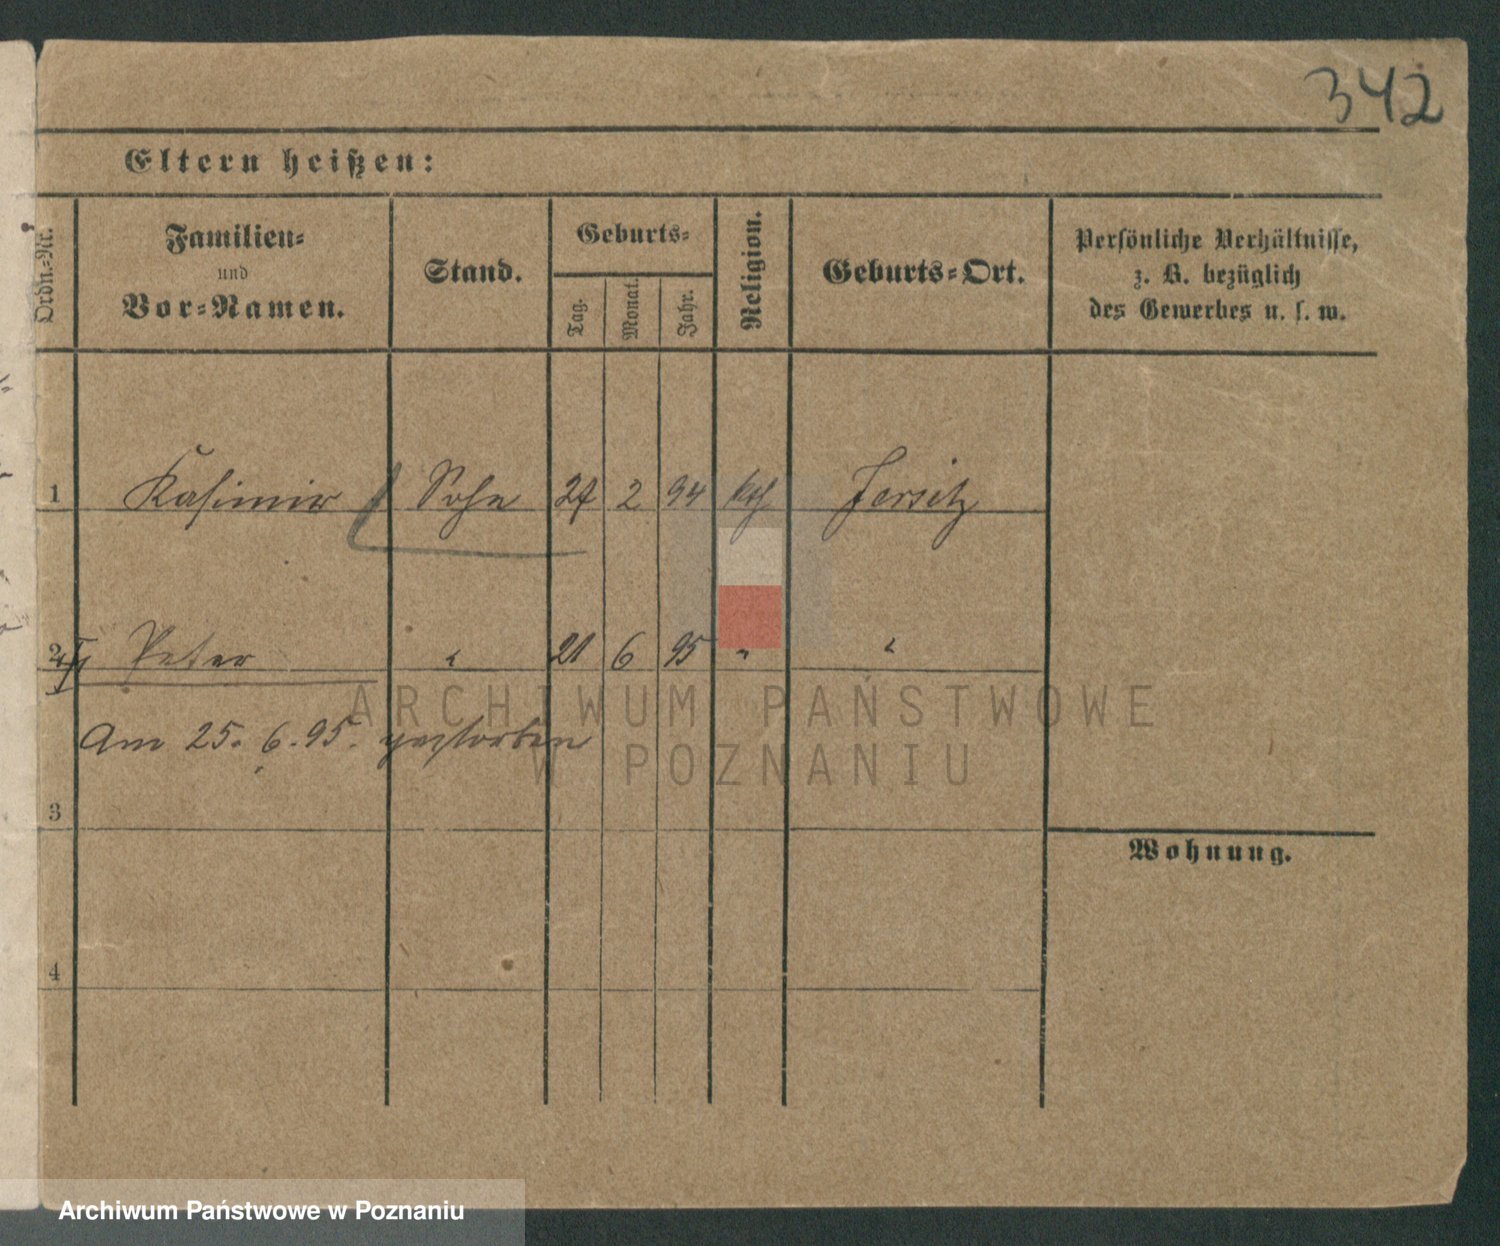 342
Eltern heißen:
Ordn.-Nr.
Familien-
und
Vor-Namen.
Stand.
Geburts-
Tag.
Monat.
Jahr.
Religion.
Geburts-Ort.
Persönliche Verhältnisse,
z. B. bezüglich
des Gewerbes u. s. w.
1 Kasimir Sohn 27 2 94 kth Jersitz
2 Peter " 21 6 95 " "
Am 25. 6. 95. gestorben
ARCHIWUM PAŃSTWOWE
W POZNANIU
3
Wohnung.
4
Archiwum Państwowe w Poznaniu